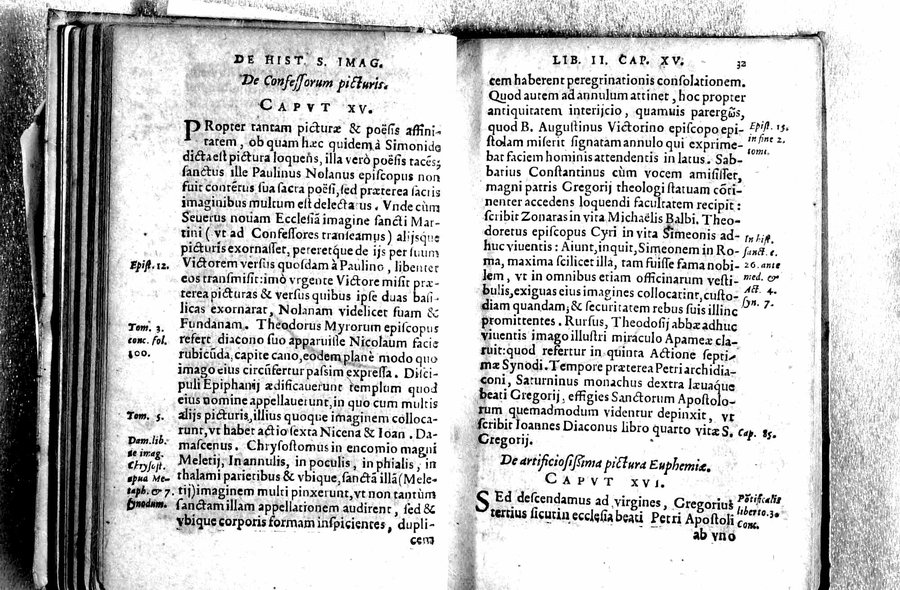 DE HIST. S. IMAG.
De Confessorum picturis.
CAPVT XV.
PRopter tantam picturæ & poësis affini-
tatem, ob quam hæc quidem à Simonide
dicta est pictura loquens, illa verò poësis tacés;
sanctus ille Paulinus Nolanus episcopus non
fuit contétus sua sacra poësi, sed præterea sacris
imaginibus multum est delectatus. Vnde cùm
Seuerus nouam Ecclesiā imagine sancti Mar-
tini (vt ad Confessores transeamus) alijsque
picturis exornasset, peteretque de ijs per suum
Epist. 12. Victorem versus quosdam à Paulino, libenter
eos transmisit: imò vrgente Victore misit præ-
terea picturas & versus quibus ipse duas basi-
licas exornarat, Nolanam videlicet suam &
Fundanam. Theodorus Myrorum episcopus
Tom. 3. refert diacono suo apparuisse Nicolaum facie
conc. fol. rubicūda, capite cano, eodem planè modo quo
100. imago eius circūfertur passim expressa. Disci-
puli Epiphanij ædificauerunt templum quod
eius nomine appellauerunt, in quo cum multis
Tom. 5. alijs picturis, illius quoque imaginem colloca-
runt, vt habet actio sexta Nicena & Ioan. Da-
Dam. lib. mascenus. Chrysostomus in encomio magni
de imag. Meletij, In annulis, in poculis, in phialis, in
Chrysost. thalami parietibus & vbique, sanctā illā (Mele-
apud Me- tij) imaginem multi pinxerunt, vt non tantùm
taph. & 7. sanctam illam appellationem audirent, sed &
synodum. vbique corporis formam inspicientes, dupli-
cem
LIB. II. CAP. XV. 32
cem haberent peregrinationis consolationem.
Quod autem ad annulum attinet, hoc propter
antiquitatem interijcio, quamuis parergῶs,
quod B. Augustinus Victorino episcopo epi- Epist. 15.
stolam miserit signatam annulo qui exprime- in fine 2.
bat faciem hominis attendentis in latus. Sab- tomi.
barius Constantinus cùm vocem amisisset,
magni patris Gregorij theologi statuam cōti-
nenter accedens loquendi facultatem recipit:
scribit Zonaras in vita Michaëlis Balbi. Theo-
doretus episcopus Cyri in vita Simeonis ad- In hist.
huc viuentis: Aiunt, inquit, Simeonem in Ro- sanct. c.
ma, maxima scilicet illa, tam fuisse fama nobi- 26. ante
lem, vt in omnibus etiam officinarum vesti- med. &
bulis, exiguas eius imagines collocarint, custo- Act. 4.
diam quandam, & securitatem rebus suis illinc syn. 7.
promittentes. Rursus, Theodosij abbæ adhuc
viuentis imago illustri miraculo Apameæ cla-
ruit: quod refertur in quinta Actione septi-
mæ Synodi. Tempore præterea Petri archidia-
coni, Saturninus monachus dextra læuaque
beati Gregorij, effigies Sanctorum Apostolo-
rum quemadmodum videntur depinxit, vt
scribit Ioannes Diaconus libro quarto vitæ S. Cap. 85.
Gregorij.
De artificiosissima pictura Euphemiæ.
CAPVT XVI.
SEd descendamus ad virgines, Gregorius Pōtificalis
tertius sicut in ecclesia beati Petri Apostoli liber to. 3.
conc.
ab vno